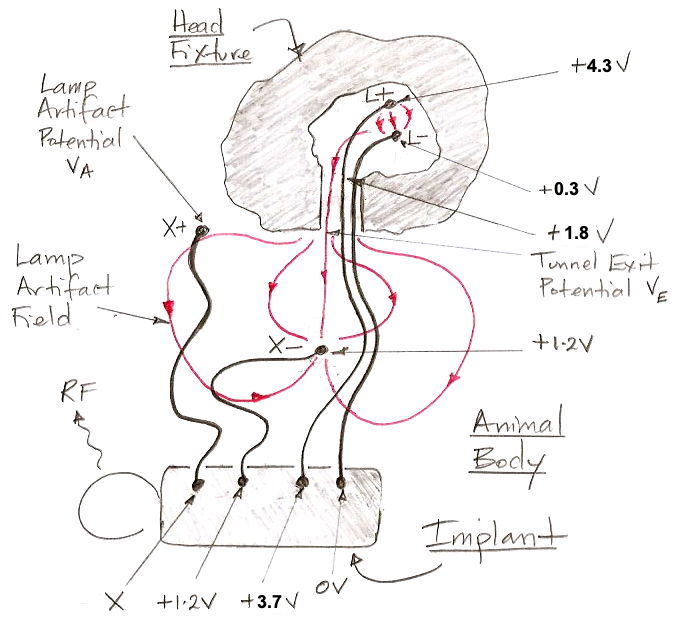 Head
Fixture
+4.3 V
Lamp
Artifact
Potential
VA
L+
L-
+0.3 V
X+
+1.8 V
Tunnel Exit
Potential VE
Lamp
Artifact
Field
X-
+1.2V
RF
Animal
Body
Implant
X
+1.2V
+3.7 V
0V